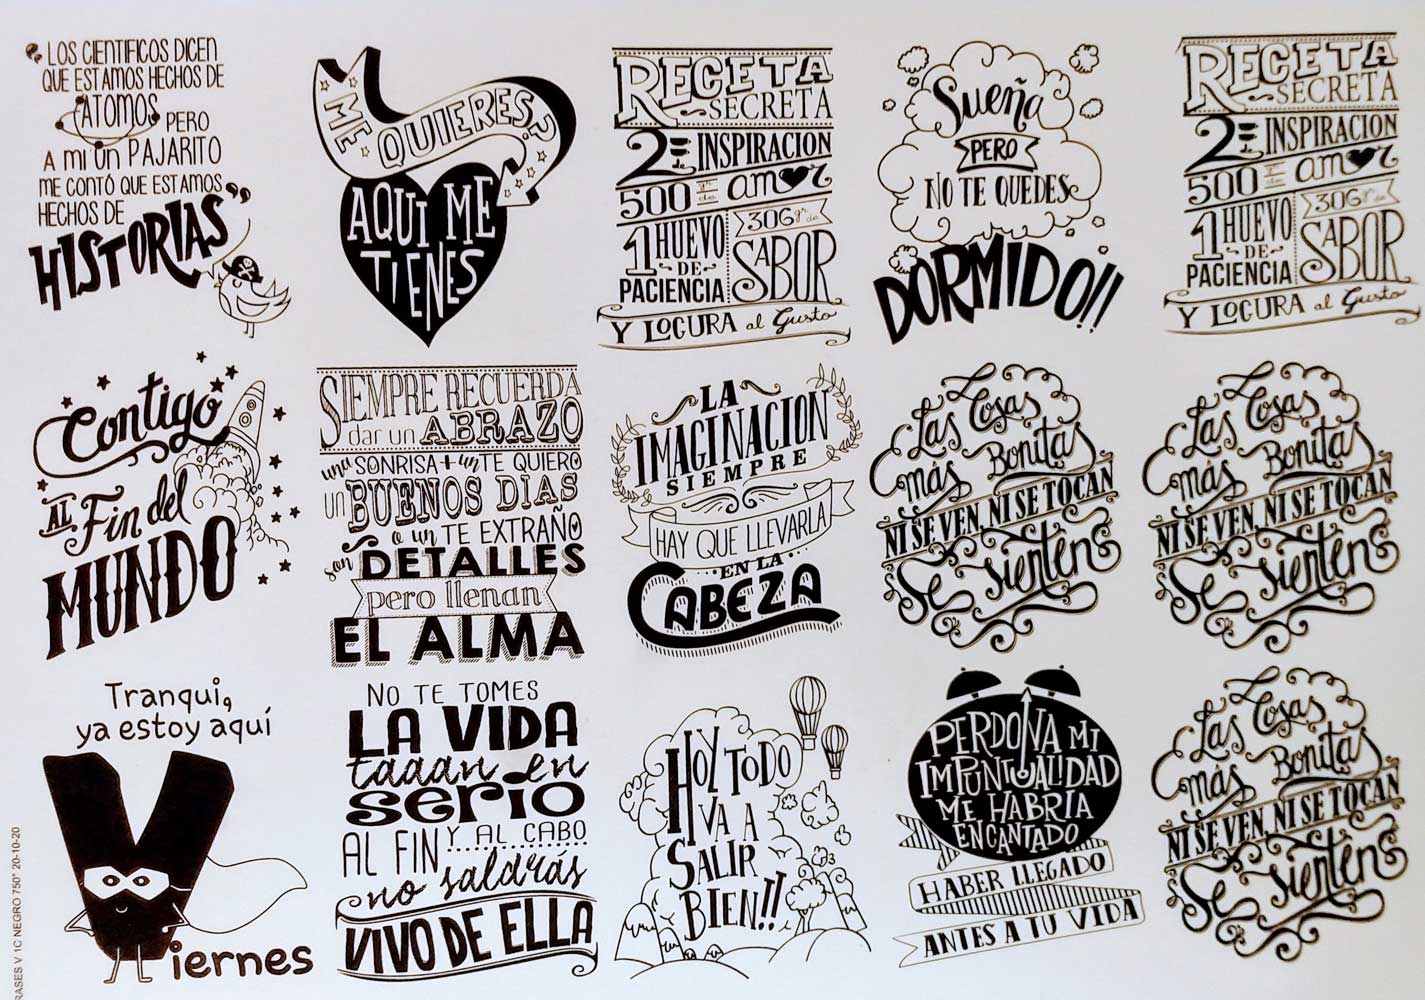 LOS CIENTIFICOS DICEN
QUE ESTAMOS HECHOS DE
ATOMOS
PERO
A mi un PAJARITO
ME CONTÓ QUE ESTAMOS
HECHOS DE
HISTORIAS
ME QUIERES?
AQUI ME
TIENES
RECETA
SECRETA
2 gr de INSPIRACION
500 gr de amor
1 HUEVO
DE
PACIENCIA
306 gr de
SABOR
Y LOCURA al Gusto
Sueña
PERO
NO TE QUEDES
DORMIDO!!
RECETA
SECRETA
2 gr de INSPIRACION
500 gr de amor
1 HUEVO
DE
PACIENCIA
306 gr de
SABOR
Y LOCURA al Gusto
Contigo
AL Fin del
MUNDO
SIEMPRE RECUERDA
dar un ABRAZO
una SONRISA + un TE QUIERO
un BUENOS DIAS
o un TE EXTRAÑO
son DETALLES
pero llenan
EL ALMA
LA
IMAGINACION
SIEMPRE
HAY QUE LLEVARLA
EN LA
CABEZA
Las Cosas
más Bonitas
NI SE VEN, NI SE TOCAN
Se sienten
Las Cosas
más Bonitas
NI SE VEN, NI SE TOCAN
Se sienten
Tranqui,
ya estoy aquí
Viernes
NO TE TOMES
LA VIDA
taaan en
serio
AL FIN Y AL CABO
no saldrás
VIVO DE ELLA
HOY TODO
VA A
SALIR
BIEN!!
PERDONA MI
IMPUNTUALIDAD
ME HABRIA
ENCANTADO
HABER LLEGADO
ANTES A TU VIDA
Las Cosas
más Bonitas
NI SE VEN, NI SE TOCAN
Se sienten
RASES V 1C NEGRO 750° 20-10-20